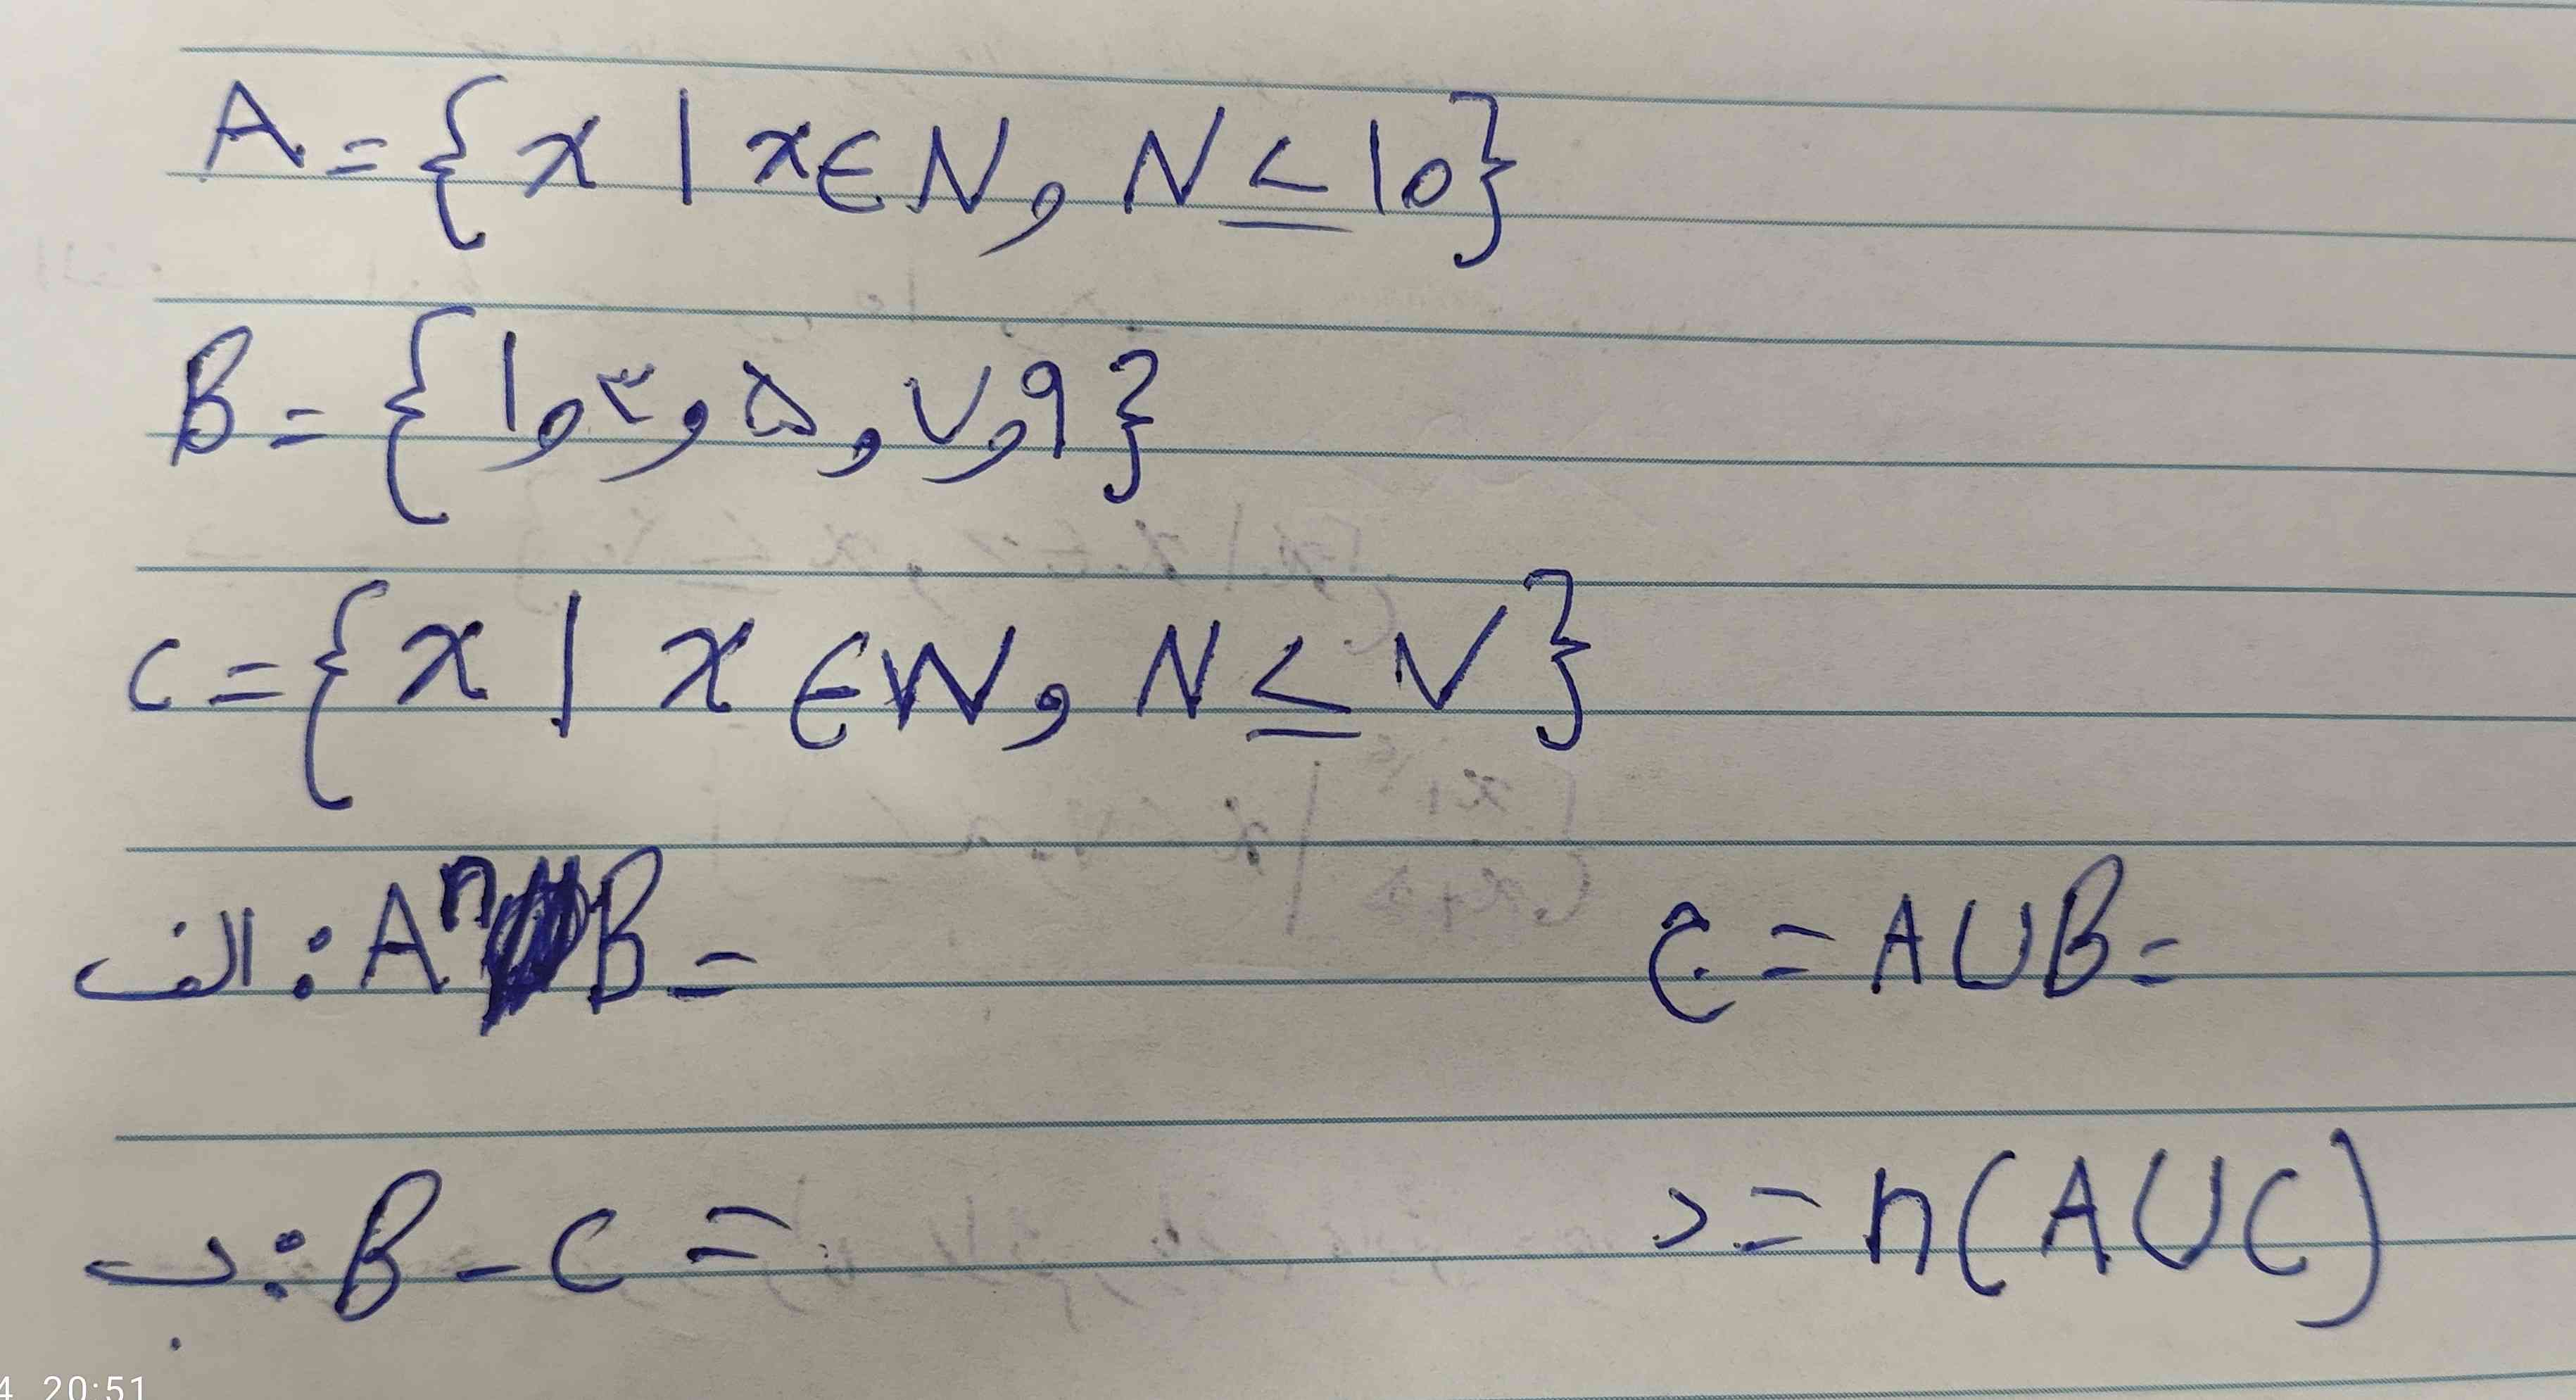 A = {x | x ∈ N , N ≤ 10}
B = {۱ , ۳ , ۵ , ۷ , ۹}
C = {x | x ∈ W , N ≤ ۷}
الف : A ∩ B =
ج = A ∪ B =
ب : B - C =
د = n(A ∪ C)
4 20:51